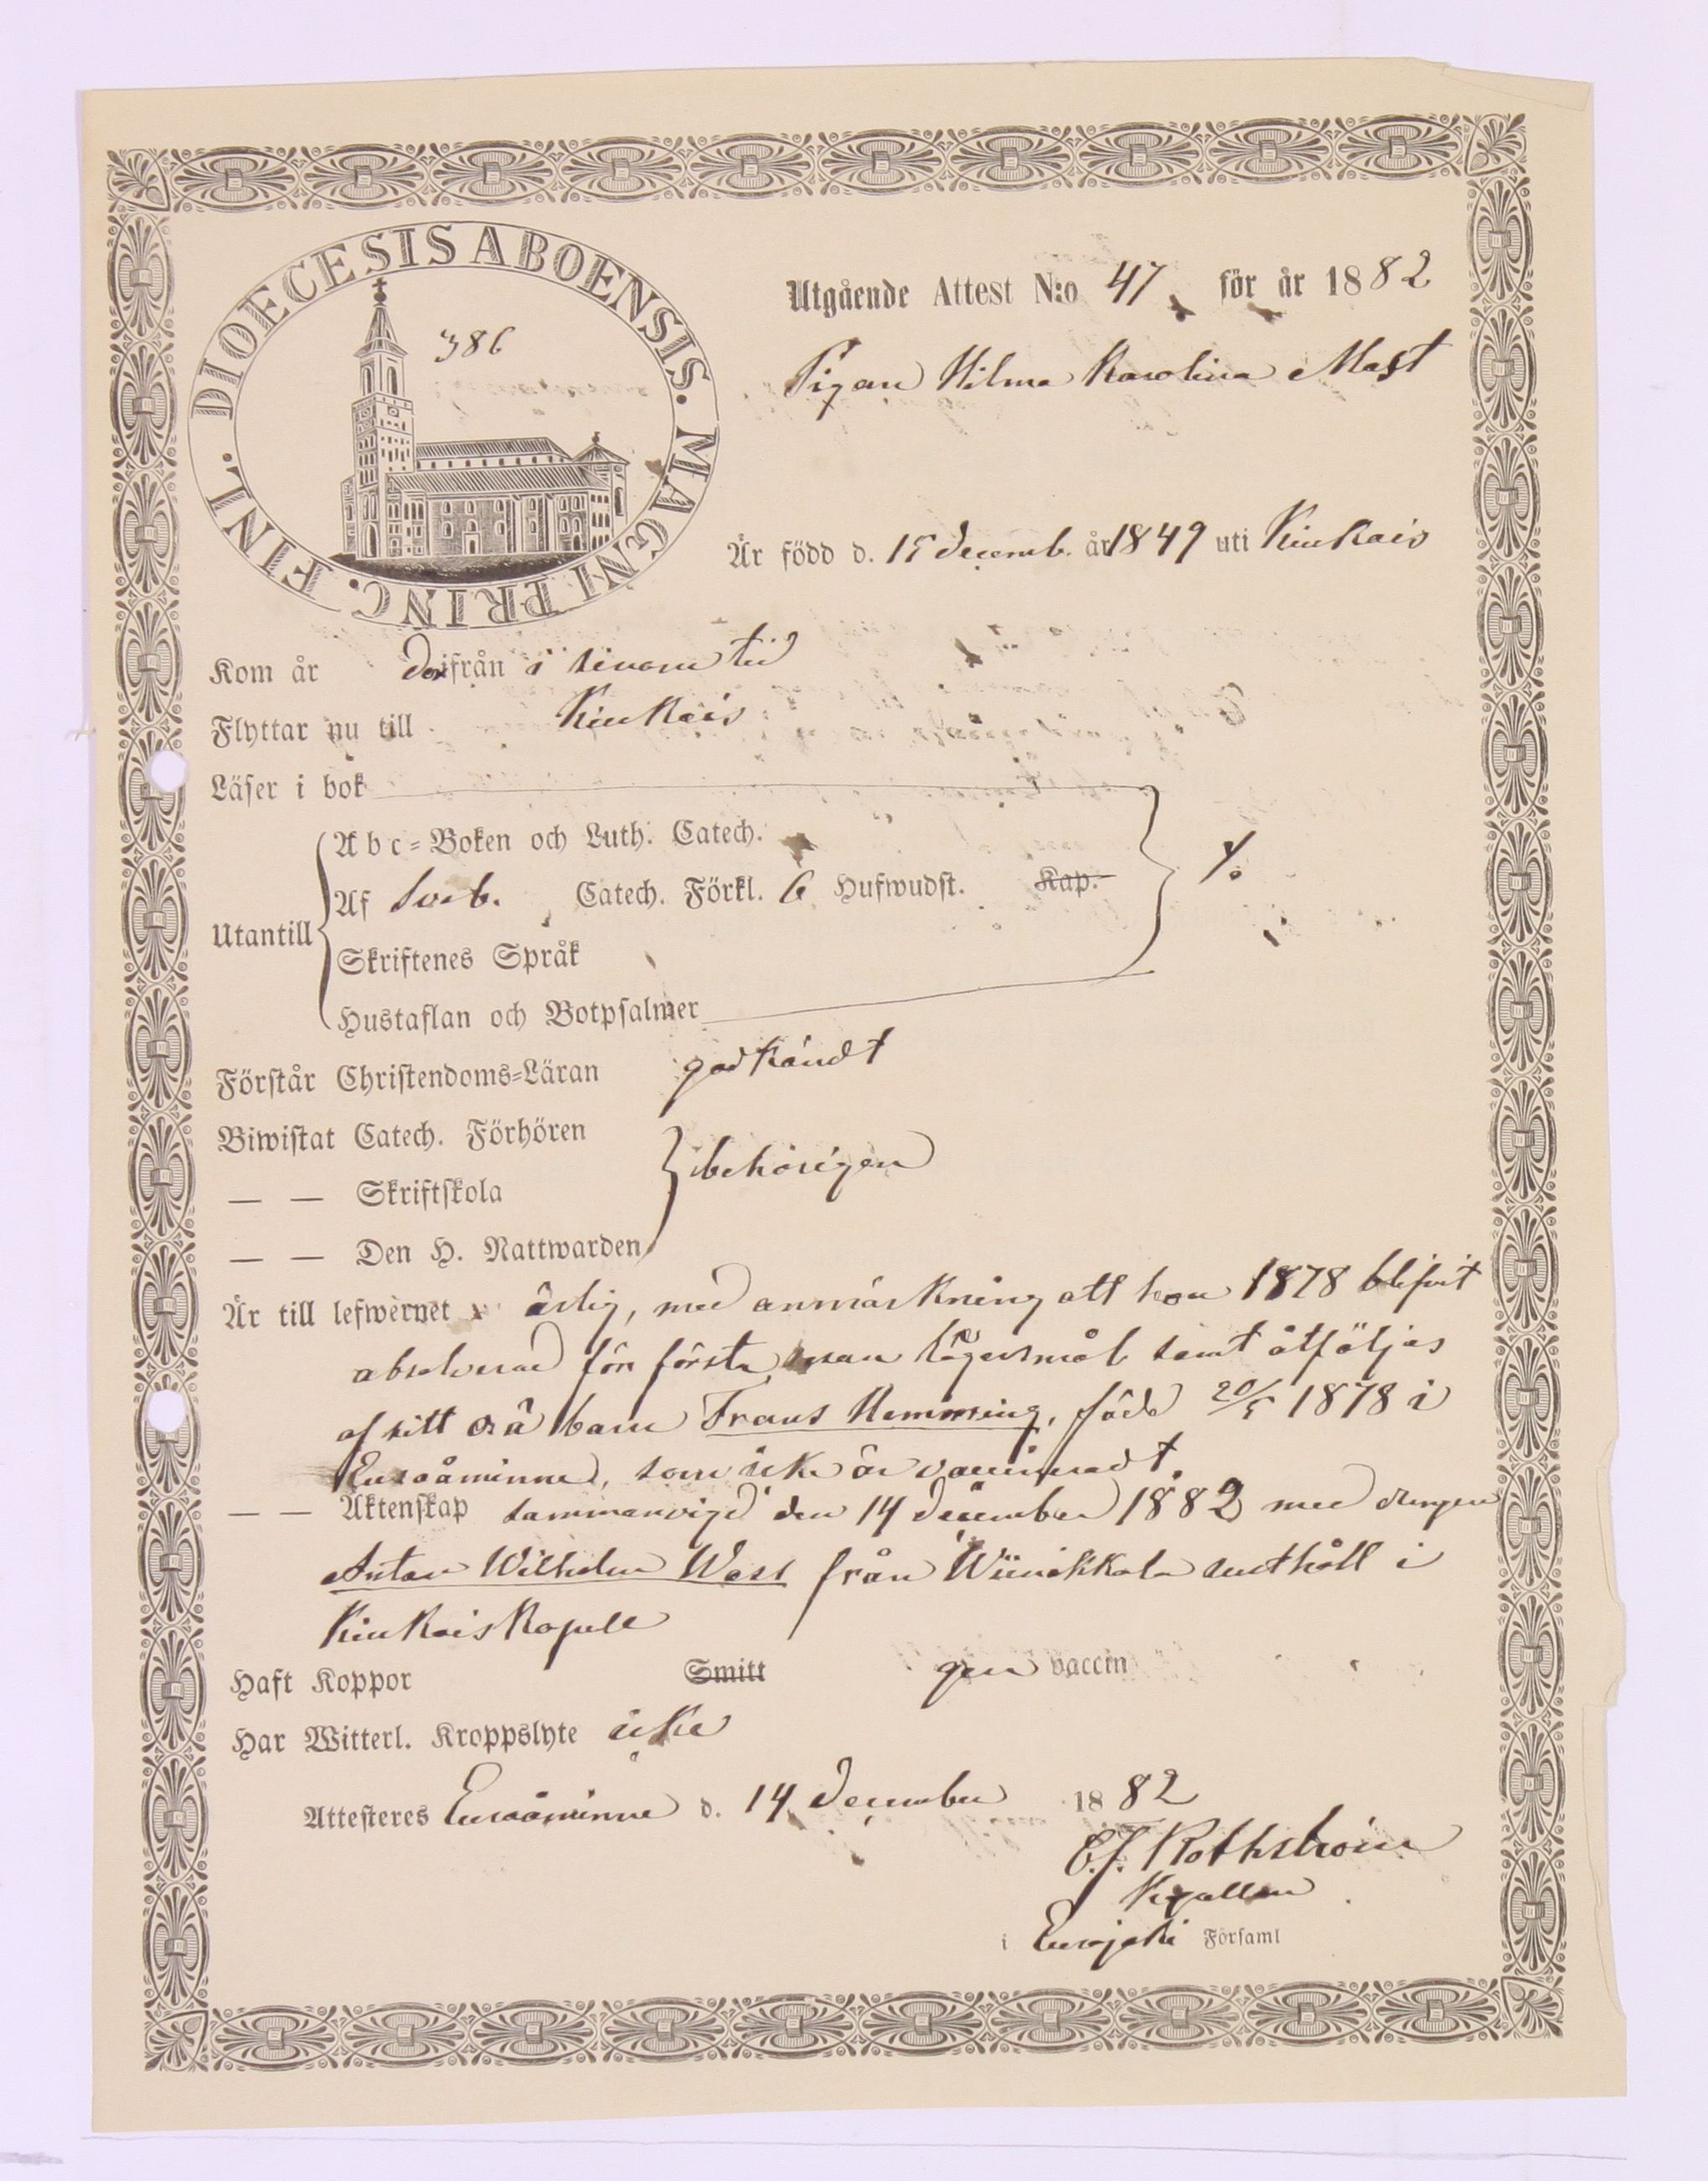 DIOECESIS ABOENSIS. MAGNI PRINC. FINL.
386
Utgående Attest N:o 47 för år 1882
Pigan Hilma Karolina Mast
Är född d. 15 decemb. år 1849 uti Kiukais
Kom år därifrån i sinom tid
Flyttar nu till Kiukais
Läser i bok
Utantill
Abc-Boken och Luth. Catech.
Af Sveb. Catech. Förkl. 6 Hufwudst. Kap.
Skriftenes Språk
Hustaflan och Botpsalmer
Förstår Christendoms-Läran godkändt
Biwistat Catech. Förhören
— — Skriftskola behörigen
— — Den H. Nattwarden
Är till lefwernet ärlig, med anmärkning att hon 1878 blifvit
absolverad för första resan lägersmål samt åtföljes
af sitt oä barn Frans Hemming, född 20/5 1878 i
Euraåminne, som icke är vaccineradt.
— — Äktenskap sammanvigd den 14 december 1882 med drengen
Anton Wilhelm Wass från Wiinikkala rusthåll i
Kiukais Kapell
Haft Koppor Smitt gen vaccin
Har Witterl. Kroppslyte icke
Attesteres Euraåminne d. 14 December 1882
C. J. Rothström
i Eurajoki Församl